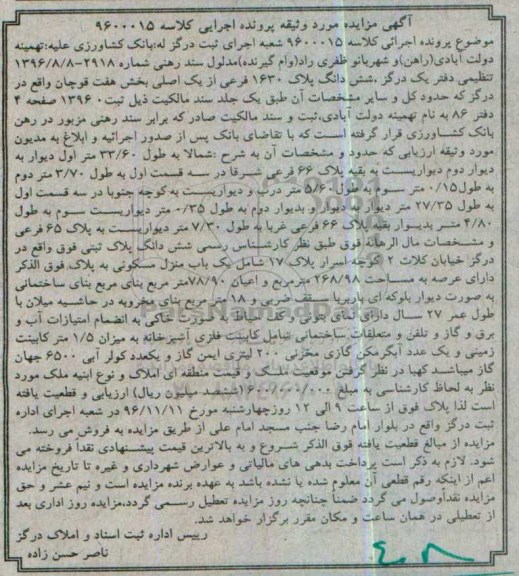 آگهی مزایده مورد وثیقه پرونده اجرایی کلاسه ۹۶۰۰۰۱۵
موضوع پرونده اجرائی کلاسه ۹۶۰۰۰۱۵ شعبه اجرای ثبت درگز له:بانک کشاورزی علیه:تهمینه
دولت آبادی(راهن)و شهربانو ظفری راد(وام گیرنده)مدلول سند رهنی شماره ۲۹۱۸-۱۳۹۶/۸/۸
تنظیمی دفتر یک درگز .شش دانگ پلاک ۱۶۳۰ فرعی از یک اصلی بخش هفت قوچان واقع در
درگز که حدود کل و سایر مشخصات آن طبق یک جلد سند مالکیت ذیل ثبت ۱۳۹۶۰ صفحه ۴
دفتر ۸۶ به نام تهمینه دولت آبادی،ثبت و سند مالکیت صادر که برابر سند رهنی مزبور در رهن
بانک کشاورزی قرار گرفته است که با تقاضای بانک پس از صدور اجرائیه و ابلاغ به مدیون
مورد وثیقه ارزیابی که حدود و مشخصات آن به شرح :شمالا به طول ۳۳/۶۰ متر اول دیوار به
دیوار دوم دیواریست به بقیه پلاک ۶۶ فرعی شرقا در سه قسمت اول به طول ۳/۷۰ متر دوم
به طول ۰/۱۵ متر سوم به طول ۵/۶۰ متر درب و دیواریست به کوچه جنوبا در سه قسمت اول
به طول ۲۷/۳۵ متر دیوار به دیوار و بدیوار دوم به طول ۰/۳۵ متر دیواریست سوم به طول
۴/۸۰ متر بدیوار بقیه پلاک ۶۶ فرعی غربا به طول ۷/۳۰ متر دیواریست به پلاک ۶۵ فرعی
و مشخصات مال الرهانه فوق طبق نظر کارشناس رسمی شش دانگ پلاک ثبتی فوق واقع در
درگز خیابان کلات ۲ کوچه اسرار پلاک ۱۷ شامل یک باب منزل مسکونی به پلاک فوق الذکر
دارای عرصه به مساحت ۲۶۸/۹۸ مترمربع و اعیان ۷۸/۹۰متر مربع بنای مربع بنای ساختمانی
به صورت دیوار بلوکه ای باربربا سقف ضربی و ۱۸ متر مربع بنای مخروبه در حاشیه میلان با
طول عمر ۲۷ سال دارای نمای بلوکی و کف حیاط به صورت خاکی به انضمام امتیازات آب و
برق و گاز و تلفن و متعلقات ساختمانی شامل کابینت فلزی آشپزخانه به میزان ۱/۵ متر کابینت
زمینی و یک عدد آبگرمکن گازی مخزنی ۲۰۰ لیتری ایمن گاز و یکعدد کولر آبی ۶۵۰۰ جهان
گاز میباشد کهبا در نظر گرفتن موقعیت ملک و قیمت منطقه ای املاک و نوع ابنیه ملک مورد
نظر به لحاظ کارشناسی به مبلغ ریال) ارزیابی و قطعیت یافته
است لذا پلاک فوق از ساعت ۹ الی ۱۲ روزچهارشنبه مورخ ۹۶/۱۱/۱۱ در شعبه اجرای اداره
ثبت درگز واقع در بلوار امام رضا جنب مسجد امام علی از طریق مزایده به فروش می رسد.
مزایده از مبالغ قطعیت یافته فوق الذکر شروع و به بالاترین قیمت پیشنهادی نقداً فروخته می
شود. لازم به ذکر است پرداخت بدهی های مالیاتی و عوارض شهرداری و غیره تا تاریخ مزایده
اعم از اینکه رقم قطعی آن معلوم شده یا نشده باشد به عهده برنده مزایده است و نیم عشر و حق
مزایده نقدأوصول می گردد ضمناً چنانچه روز مزایده تعطیل رسمی گردد،مزایده روز اداری بعد
از تعطیلی در همان ساعت و مکان مقرر برگزار خواهد شد.
رییس اداره ثبت اسناد و املاک درگز
ناصر حسن زاده